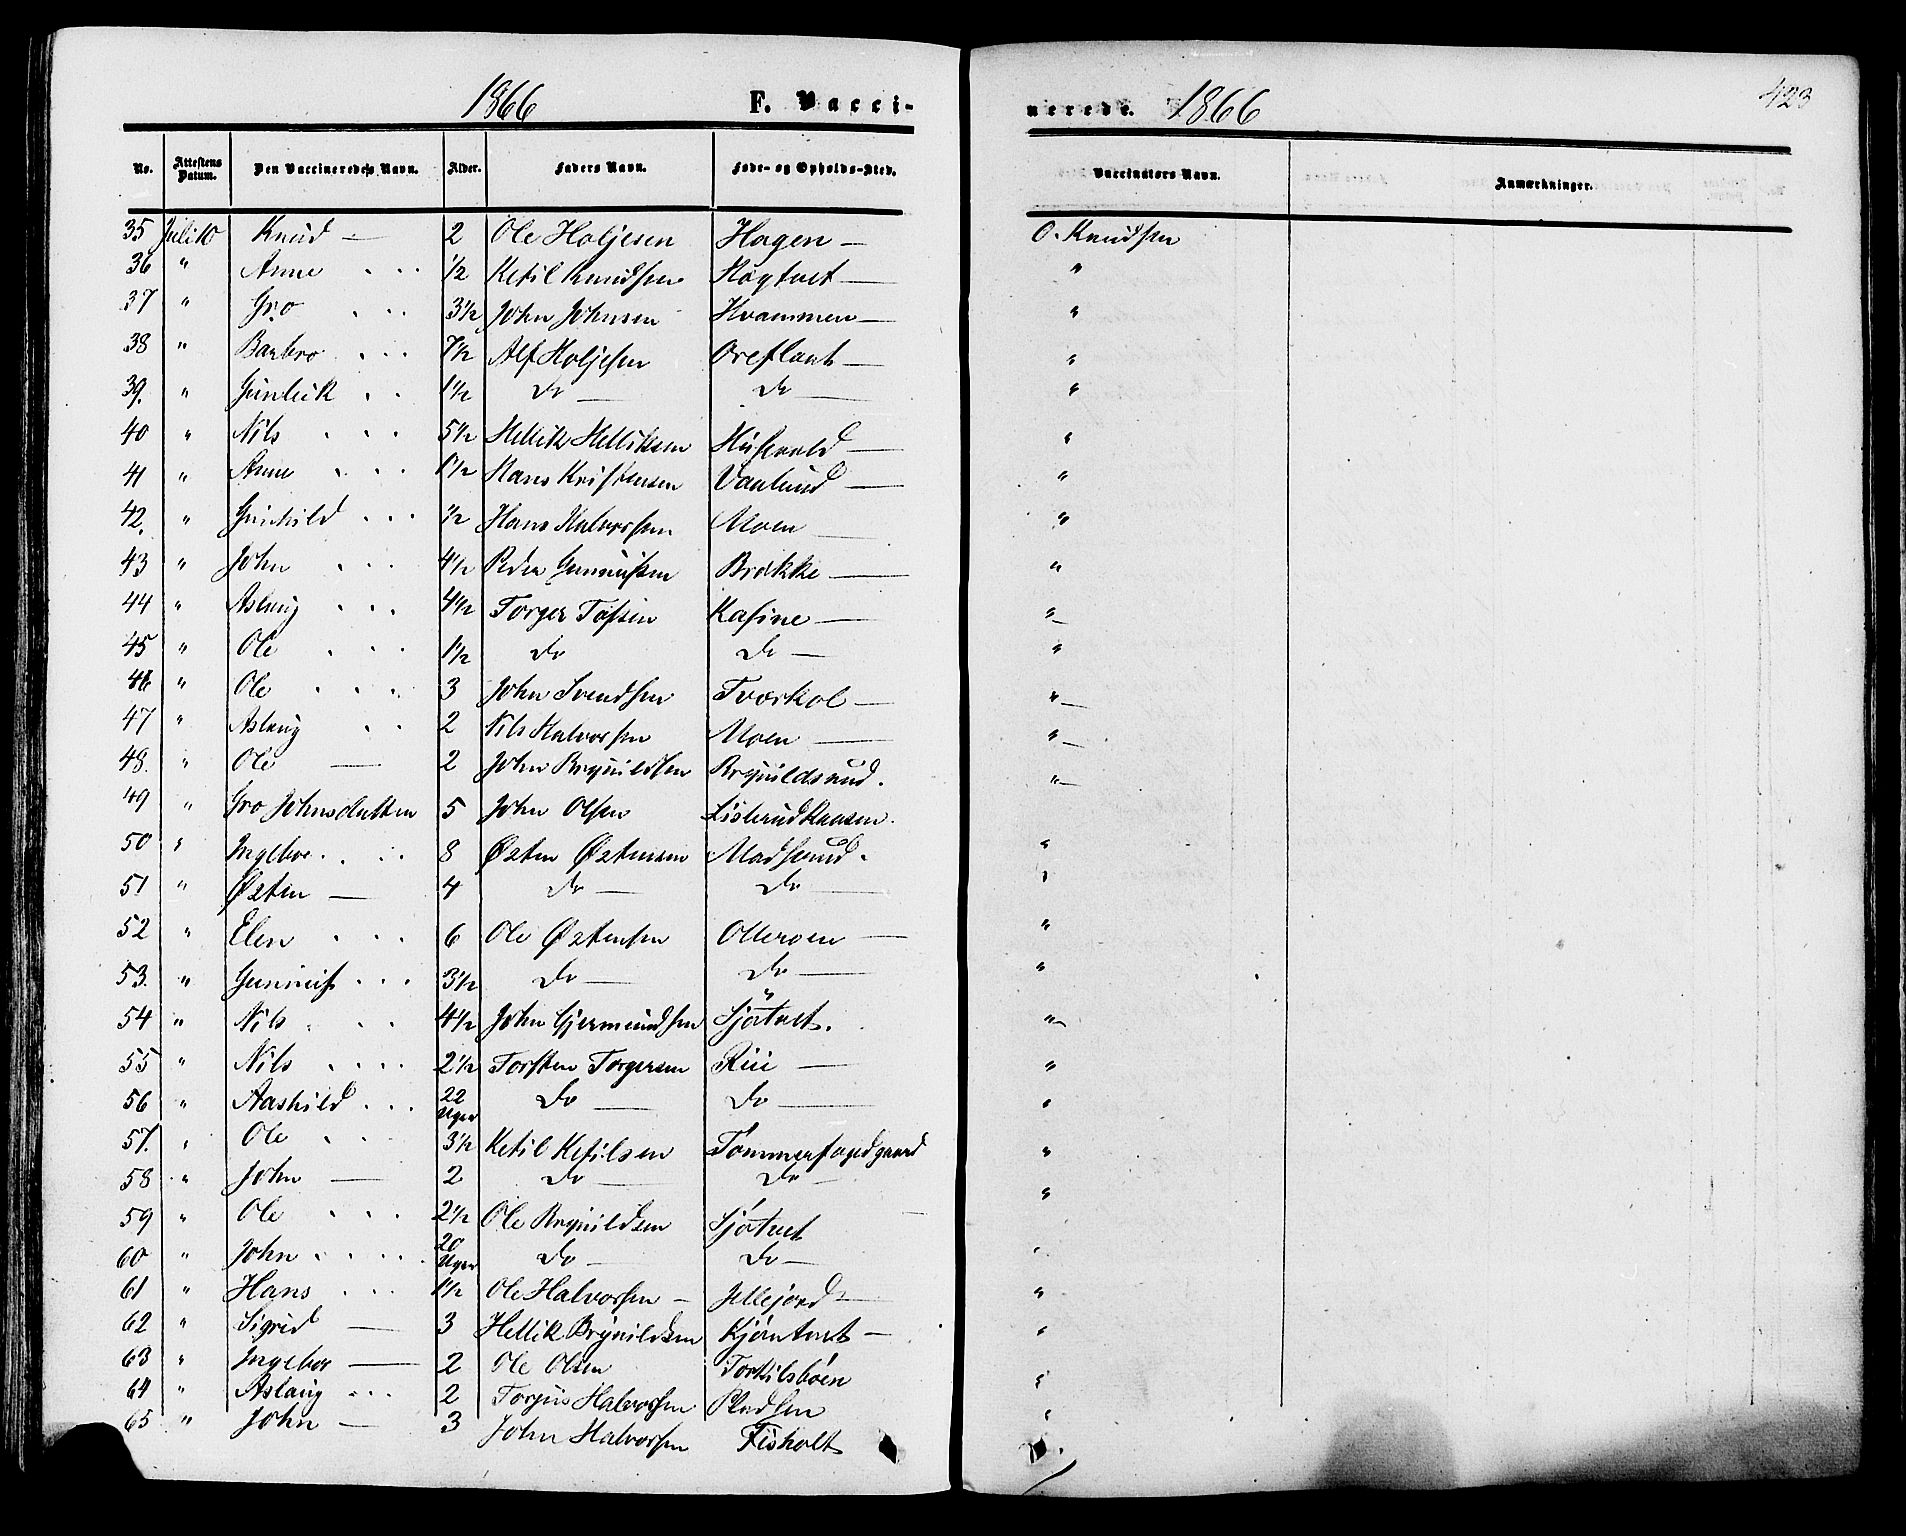 1866 F. Vacci-
No. Attestens Datum. Den Vaccineredes Navn. Alder. Faders Navn. Føde- og Opholds-Sted.
35 Juli 10 Knud — 2 Ole Holjesen Hagen —
36 " Anne . . . 1/2 Ketil Knudsen Høgtvet —
37 " Gro . . . 3 1/2 John Johnsen Hvammen —
38 " Barbro . . . 7 1/2 Alf Holjesen Oreflaat —
39. " Gunleik . . 1 1/2 do — do —
40 " Nils . . . 5 1/2 Hellik Helliksen Husevold —
41 " Anne . . . 1 1/2 Hans Kristensen Vaalund —
42. " Gunhild . . . 1/2 Hans Halvorsen Moen —
43 " John . . . 4 1/2 Peder Gunnufsen Brække —
44 " Aslaug . . . 4 1/2 Torger Tofsen Kasine —
45 " Ole . . . 1 1/2 do do —
46 " Ole . . . 3 John Svendsen Tværkol —
47 " Aslaug . . 2 Nils Halvorsen Moen —
48. " Ole — 2 John Brynildsen Brynildsrud.
49 " Gro Johnsdatter 5 John Olsen Listerudkaasen.
50 " Ingebor . . . 8 Østen Østensen Madsrud.
51 " Østen — 4 do — do —
52 " Elen . . . 6 Ole Østensen Olleroen —
53. " Gunnuf . . . 3 1/2 do — do —
54 " Nils . . . 4 1/2 John Gjermundsen Sjøtvet.
55 " Nils . . . . 2 1/2 Torsten Torgersen Rui —
56 " Aashild . . . 22 Uger do — do —
57. " Ole . . . 3 1/2 Ketil Ketilsen Tømmerfogedgaard
58 " John — 2 do — do —
59 " Ole . . . 2 1/2 Ole Brynildsen Sjøtvet
60 " John . . . . 20 Uger do — do —
61 " Hans . . . 1 1/2 Ole Halvorsen — Jellejord —
62 " Sigrid — 3 Hellik Brynildsen Kjøntvet —
63 " Ingebor — 2 Ole Olsen Torkilsbøen
64 " Aslaug . . . 2 Torjus Halvorsen Pladsen
65 " John — 3 John Halvorsen Fisholt
nerede. 1866 423
Vaccinators Navn. Anmærkninger.
O. Knudsen